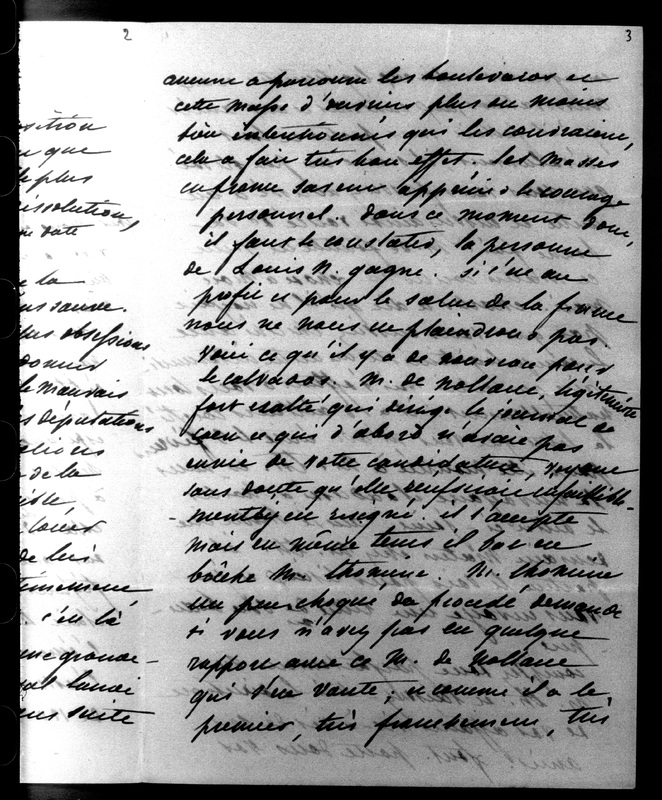 2
sition
que
plus
issolution,
date
la
sauve.
obsessions
donner
le mauvais
députations
de la
de lui
c'en là
une grande-
lundi
suite
3
aucune a parcouru les boulevards et
cette masse d'ouvriers plus ou moins
bien intentionnés qui les couvraient,
cela a fait très bon effet. les masses
en france savent apprécier le courage
personnel. dans ce moment donc,
il faut le constater, la personne
de Louis N. gagne. si c'est au
profit et pour le salut de la france
nous ne nous en plaindrons pas.
Voici ce qu'il y a de nouveau pour
le calvados. M. de Nollane, légitimiste
fort exalté qui dirige le journal de
caen et qui d'abord n'avait pas
envie de votre candidature, voyant
sans doute qu'elle réussirait infaillible-
-ment s'y est résigné. il l'accepte
mais en même tems il bat en
brêche M. thomine. M. thomine
un peu choqué du procédé demande
si vous n'avez pas eu quelque
rapport avec ce M. de Nollane
qui s'en vante, et comme il a le
premier, très franchement, très